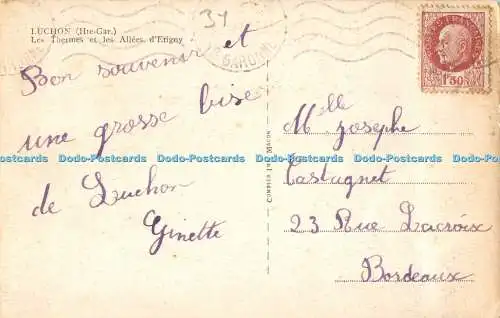 LUCHON (Hte-Gar.)
Les Thermes et les Allées d'Etigny
34
Bon souvenir et
une grosse bise
de Luchon
Ginette
Melle Josephe
Castagnet
23 Rue Lacroix
Bordeaux
1f50
Dodo-Postcards Dodo-Postcards Dodo-Postcards Dodo-Postcards Dodo-Postcards